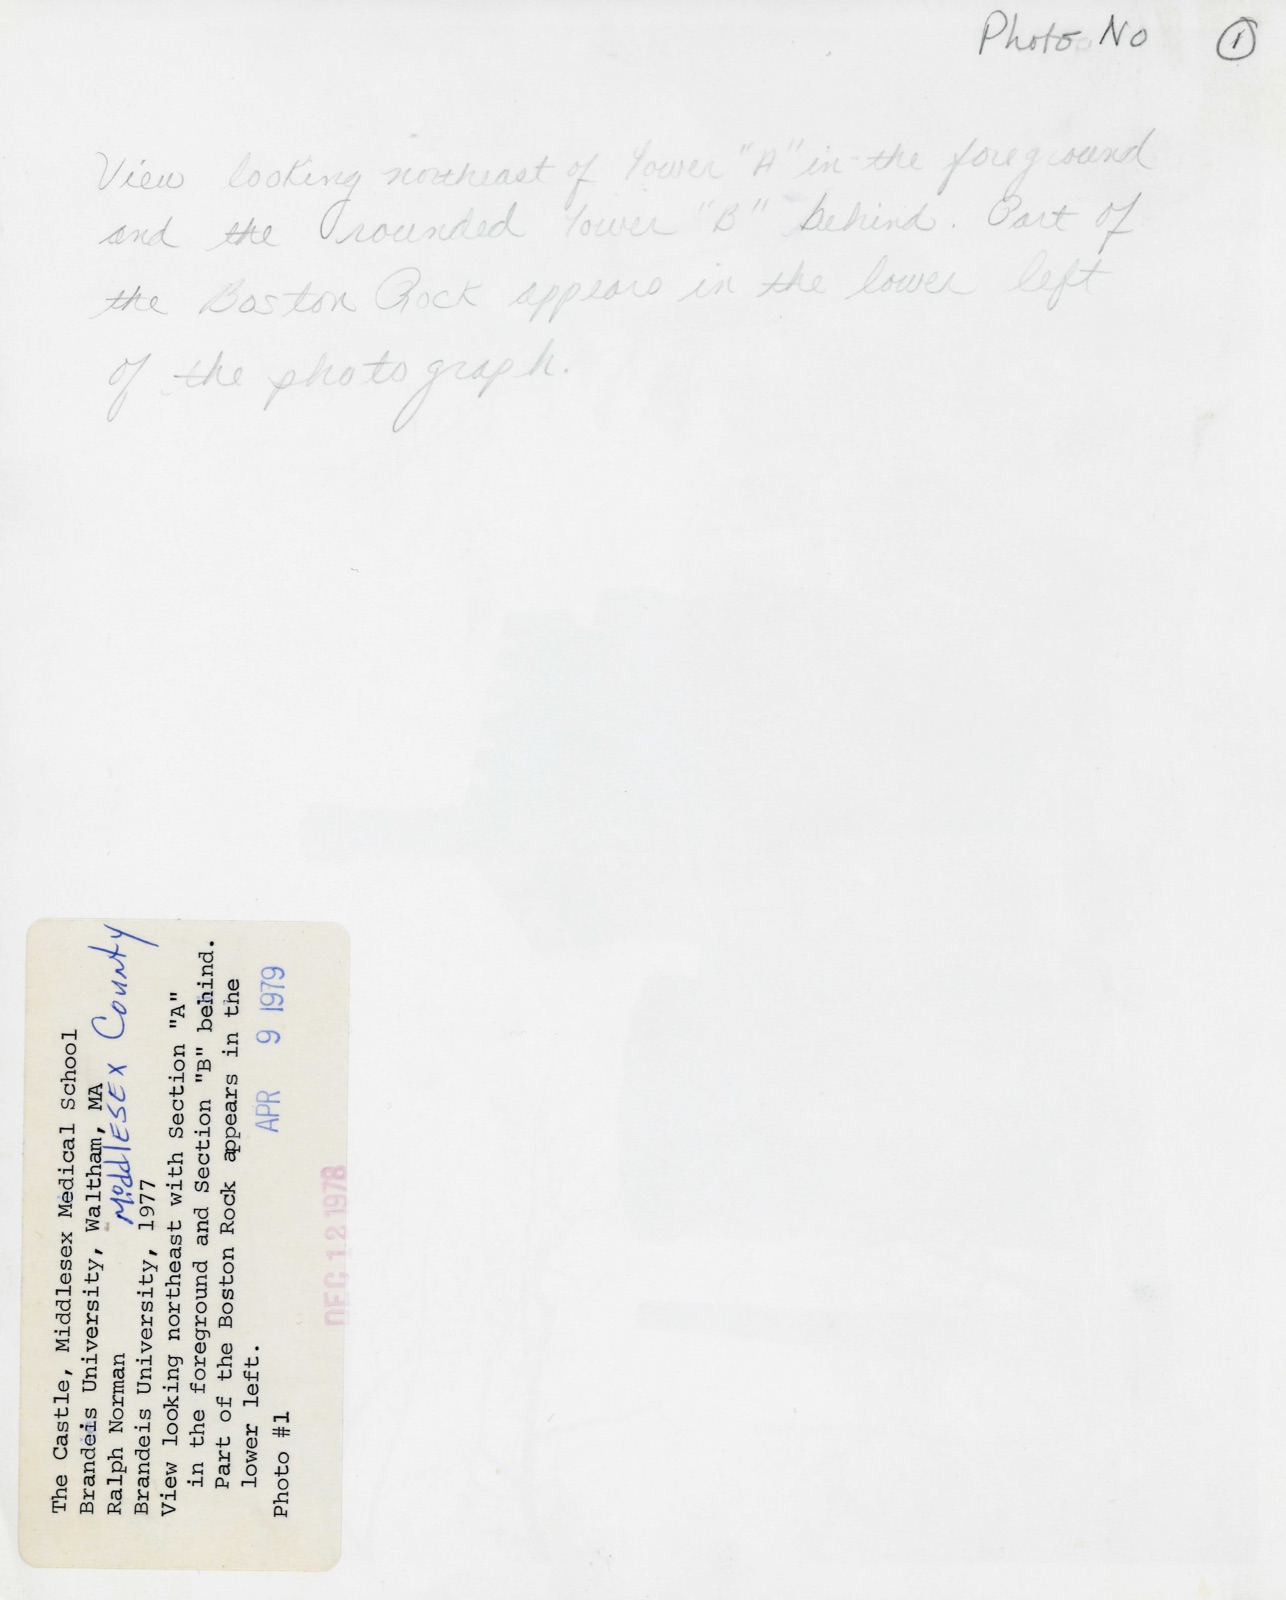 Photo No 1
View looking northeast of Tower "A" in the foreground
and the rounded Tower "B" behind. Part of
the Boston Rock appears in the lower left
of the photograph.
The Castle, Middlesex Medical School
Brandeis University, Waltham, MA
Middlesex County
Ralph Norman
Brandeis University, 1977
View looking northeast with Section "A"
in the foreground and Section "B" behind.
Part of the Boston Rock appears in the
lower left.
Photo #1
APR 9 1979
DEC 12 1978